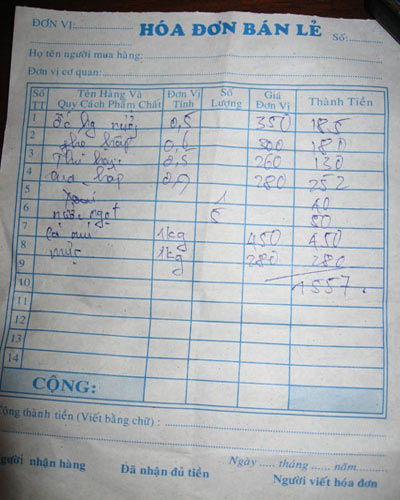 ĐƠN VỊ:
HÓA ĐƠN BÁN LẺ
Số:
Họ tên người mua hàng:
Đơn vị cơ quan:
Số TT Tên Hàng Và Quy Cách Phẩm Chất Đơn Vị Tính Số Lượng Giá Đơn Vị Thành Tiền
1 ốc 0,5 350 185
2 hấp 300 180
3 0,5 260 130
4 cua hấp 280 252
5 1 40
6 nước ngọt 5 50
7 cá mú 1kg 450 450
8 mực 1kg 280 280
9
10 1557.
11
12
13
14
CỘNG:
Cộng thành tiền (Viết bằng chữ) :
người nhận hàng Đã nhận đủ tiền Ngày ..... tháng ..... năm.....
Người viết hóa đơn